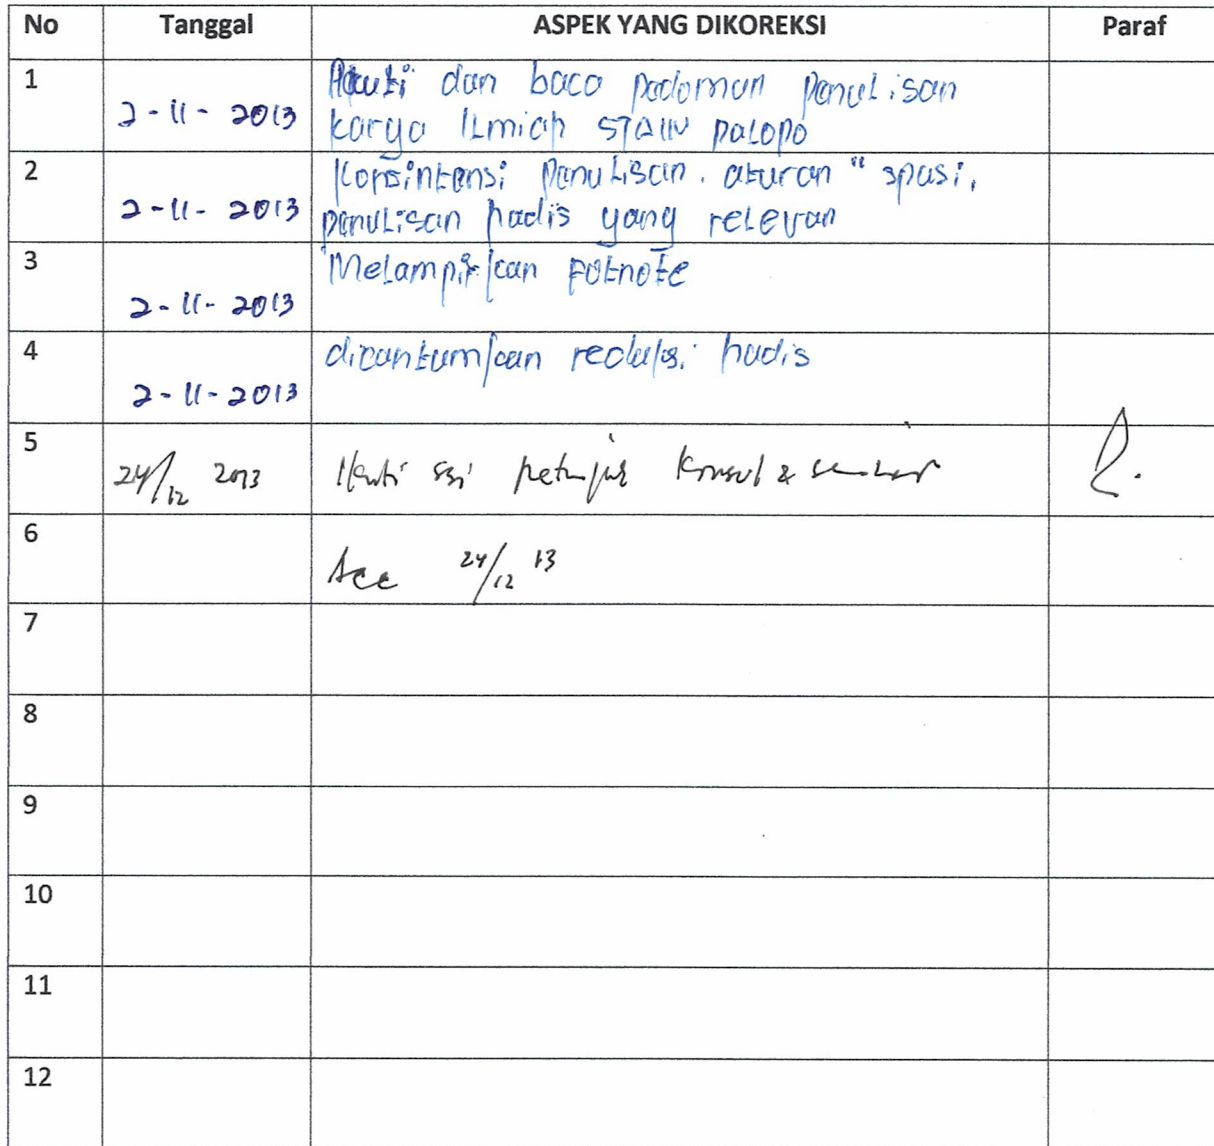 No Tanggal ASPEK YANG DIKOREKSI Paraf
1 2-11-2013 dan baca padoman penulisan
karya Ilmiah STAIN palopo
2 2-11-2013 Konsintensi penulisan. aturan " spasi,
penulisan hadis yang relevan
3 2-11-2013 Melampirkan Fotnote
4 2-11-2013 dicantumkan redaksi hadis
5 24/12 2013 Ikuti petunjuk &
6 Acc 24/12 13
7
8
9
10
11
12